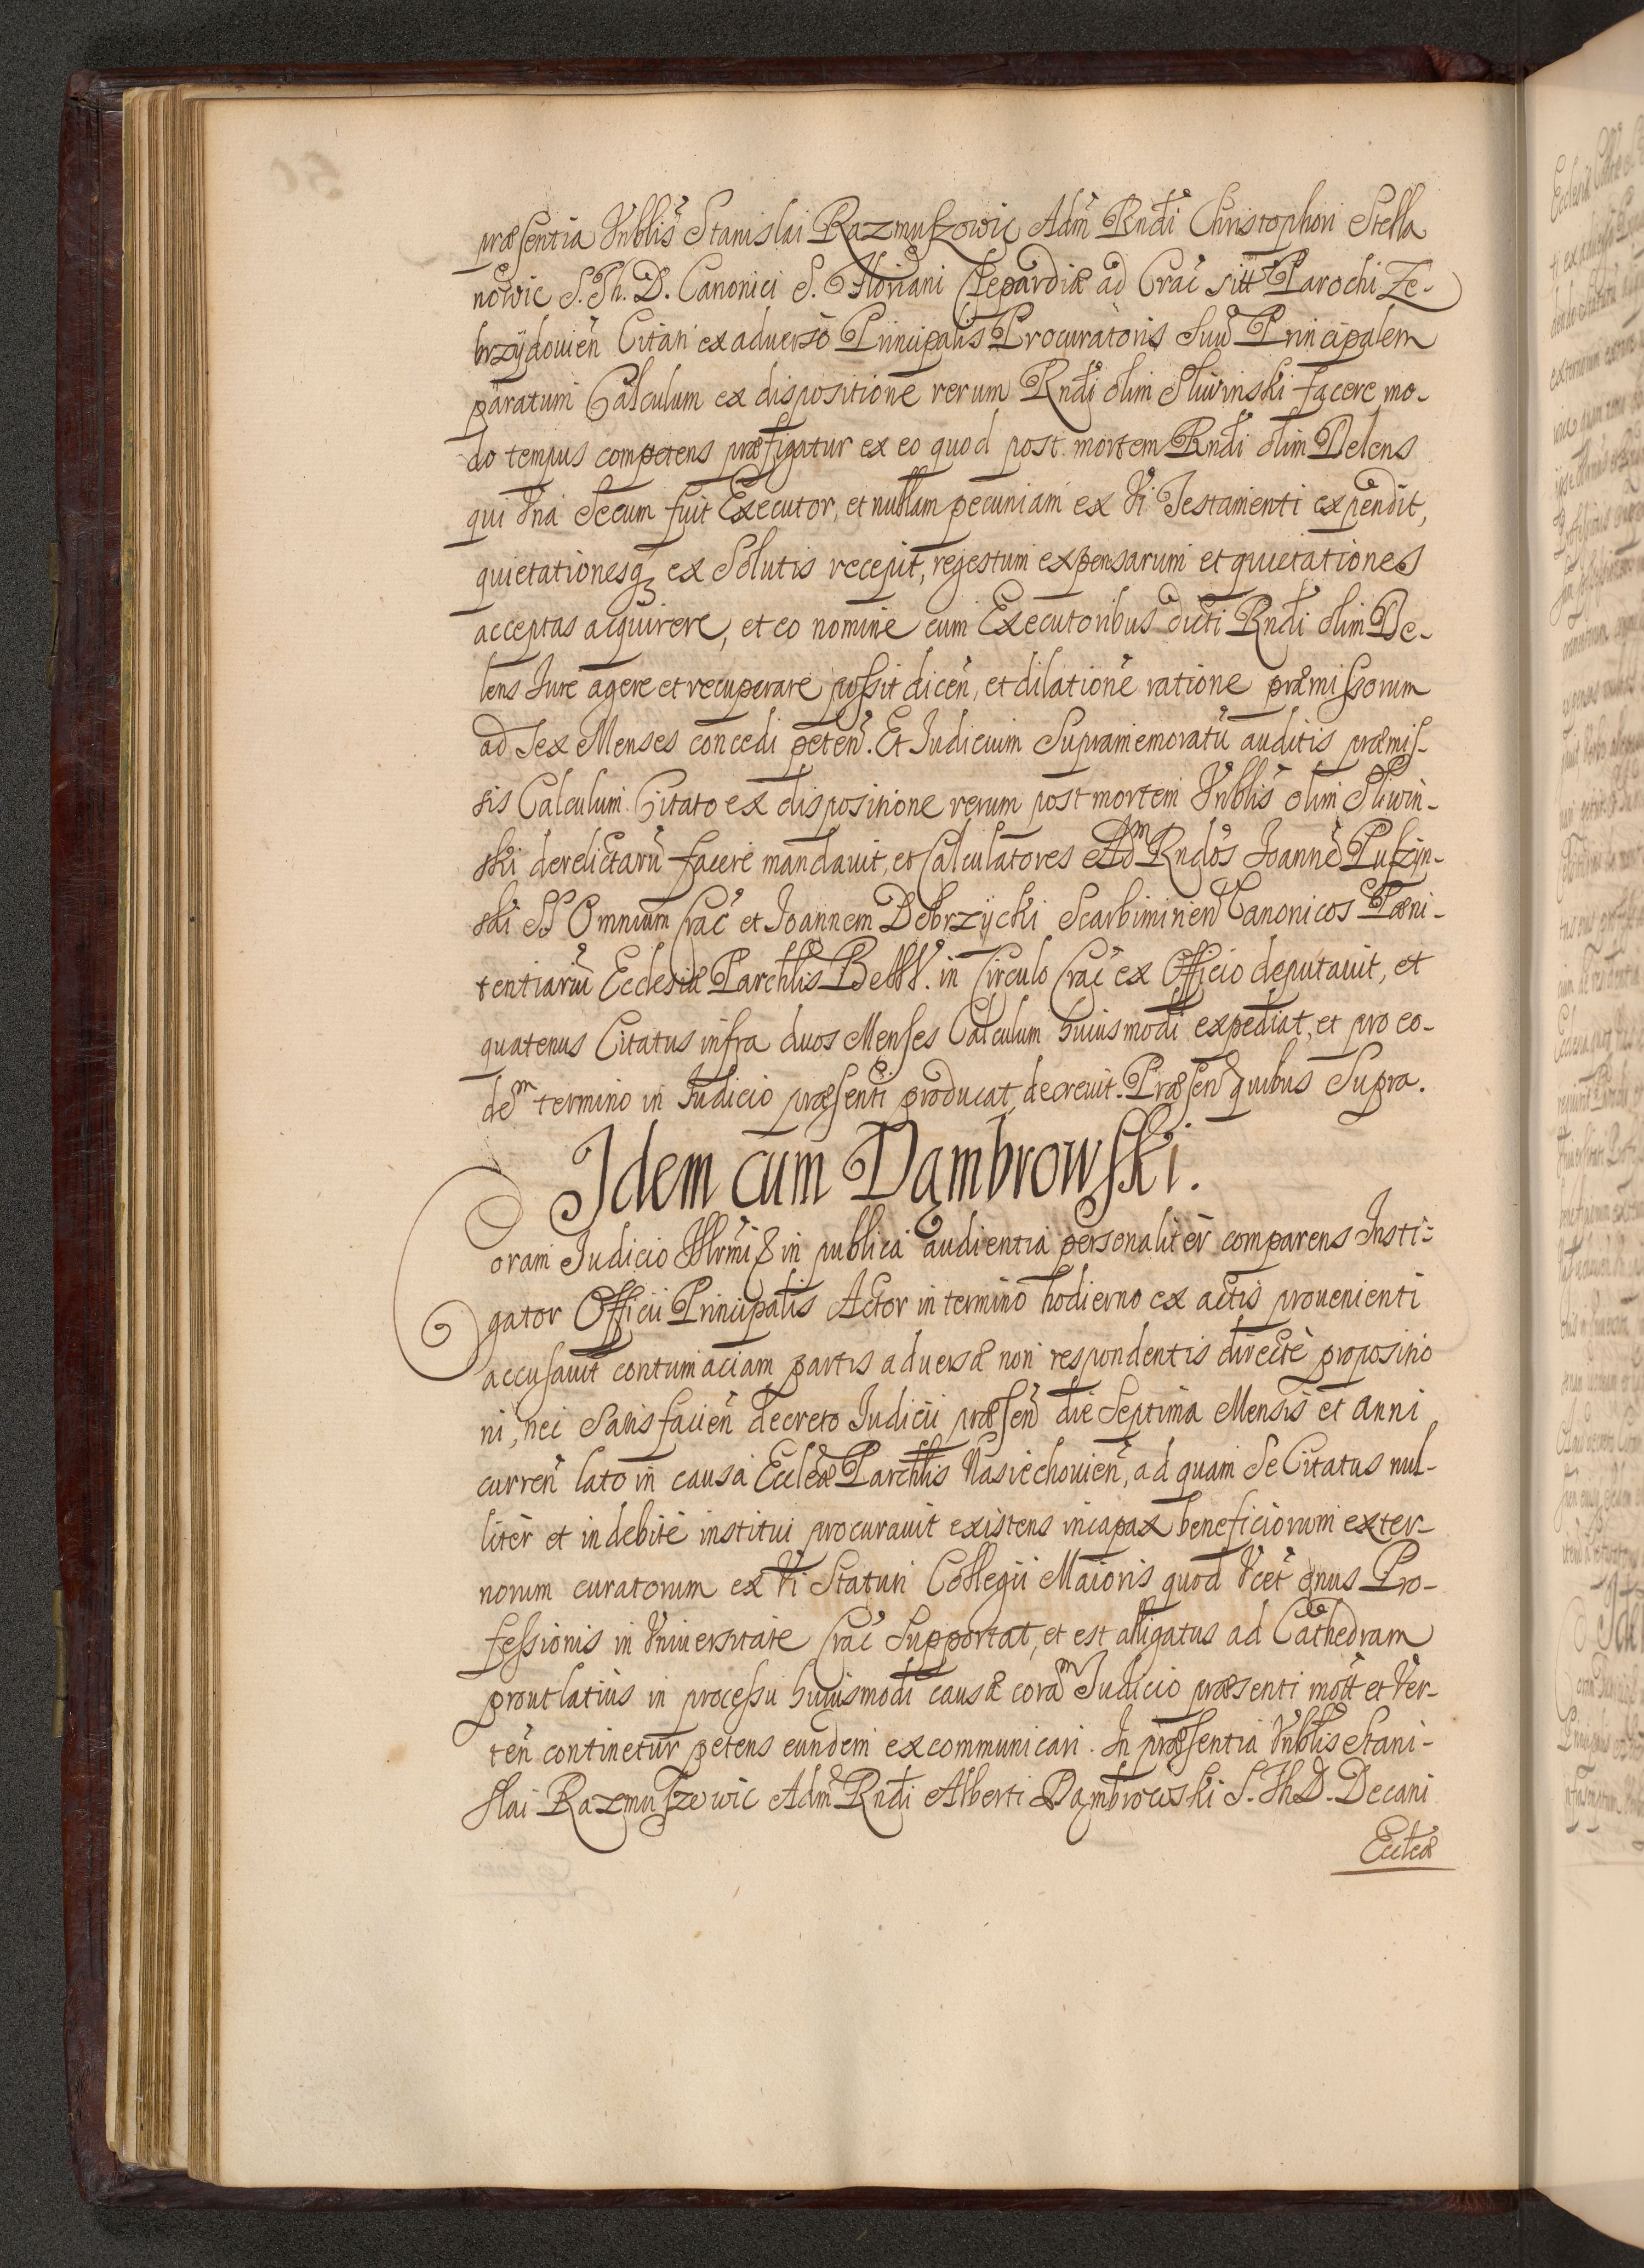 præsentia Vnblis Stanislai Razmuszowic Adm Rndi Christophori Stella
nowic S. Th. D. Canonici S. Floriani Clepardiæ ad Crac sitt Parochi Ze-
brzydouien Citati ex aduerso Principalis Procuratoris suu Principalem
paratum Calculum ex dispositione rerum Rndi olim Sliwinski facere mo-
do tempus competens præfigatur ex eo quod post mortem Rndi olim Delens
qui Vna Secum fuit Executor, et nullam pecuniam ex Vi Testamenti expendit,
quietationesq ex Solutis recepit, rejestum expensarum et quietationes
acceptas acquirere, et eo nomine cum Executoribus dicti Rndi olim De-
lens Iure agere et recuperare possit dicen, et dilatione ratione præmissorum
ad sex Menses concedi peten. Et Iudicium Supramemoratu auditis præmis-
sis Calculum Citato ex dispositione rerum post mortem Vnblis olim Sliwin-
ski derelictaru facere mandauit, et Calculatores Adm Rndos Joanne Puszyn-
ski SS Omnium Crac et Joannem Debrzycki Scarbimirien Canonicos Pæni-
tentiariu Ecclesiæ Parchlis BMV. in Circulo Crac ex Officio deputauit, et
quatenus Citatus infra duos Menses Calculum huiusmodi expediat, et pro eo-
dem termino in Iudicio præsenti producat, decreuit. Præsen quibus Supra.
Idem cum Dąmbrowski.
Coram Iudicio Illrmi S in publica audientia personaliter comparens Insti-
gator Officii Principalis Actor in termino hodierno ex actis prouenienti
accusauit contumaciam partis aduersæ non respondentis directe proposino
ni, nec Satisfacien decreto Iudicii præsen die Septima Mensis et anni
curren lato in causa Eccleæ Parchlis Nasiechouien, ad quam se Citatus nul-
liter et indebite institui procurauit existens incapax beneficiorum exter-
norum curatorum ex Vi Statuti Collegii Maioris quod Vcet onus Pro-
fessionis in Vniuersitate Crac Supportat, et est alligatus ad Cathedram
prout latius in processu huiusmodi causæ coram Iudicio præsenti mott et Ver-
ten continetur petens eundem excommunicari. In præsentia Vnblis Stani-
slai Razmuszowic Adm Rndi Alberti Dąmbrowski S. Th D. Decani
Eccleæ